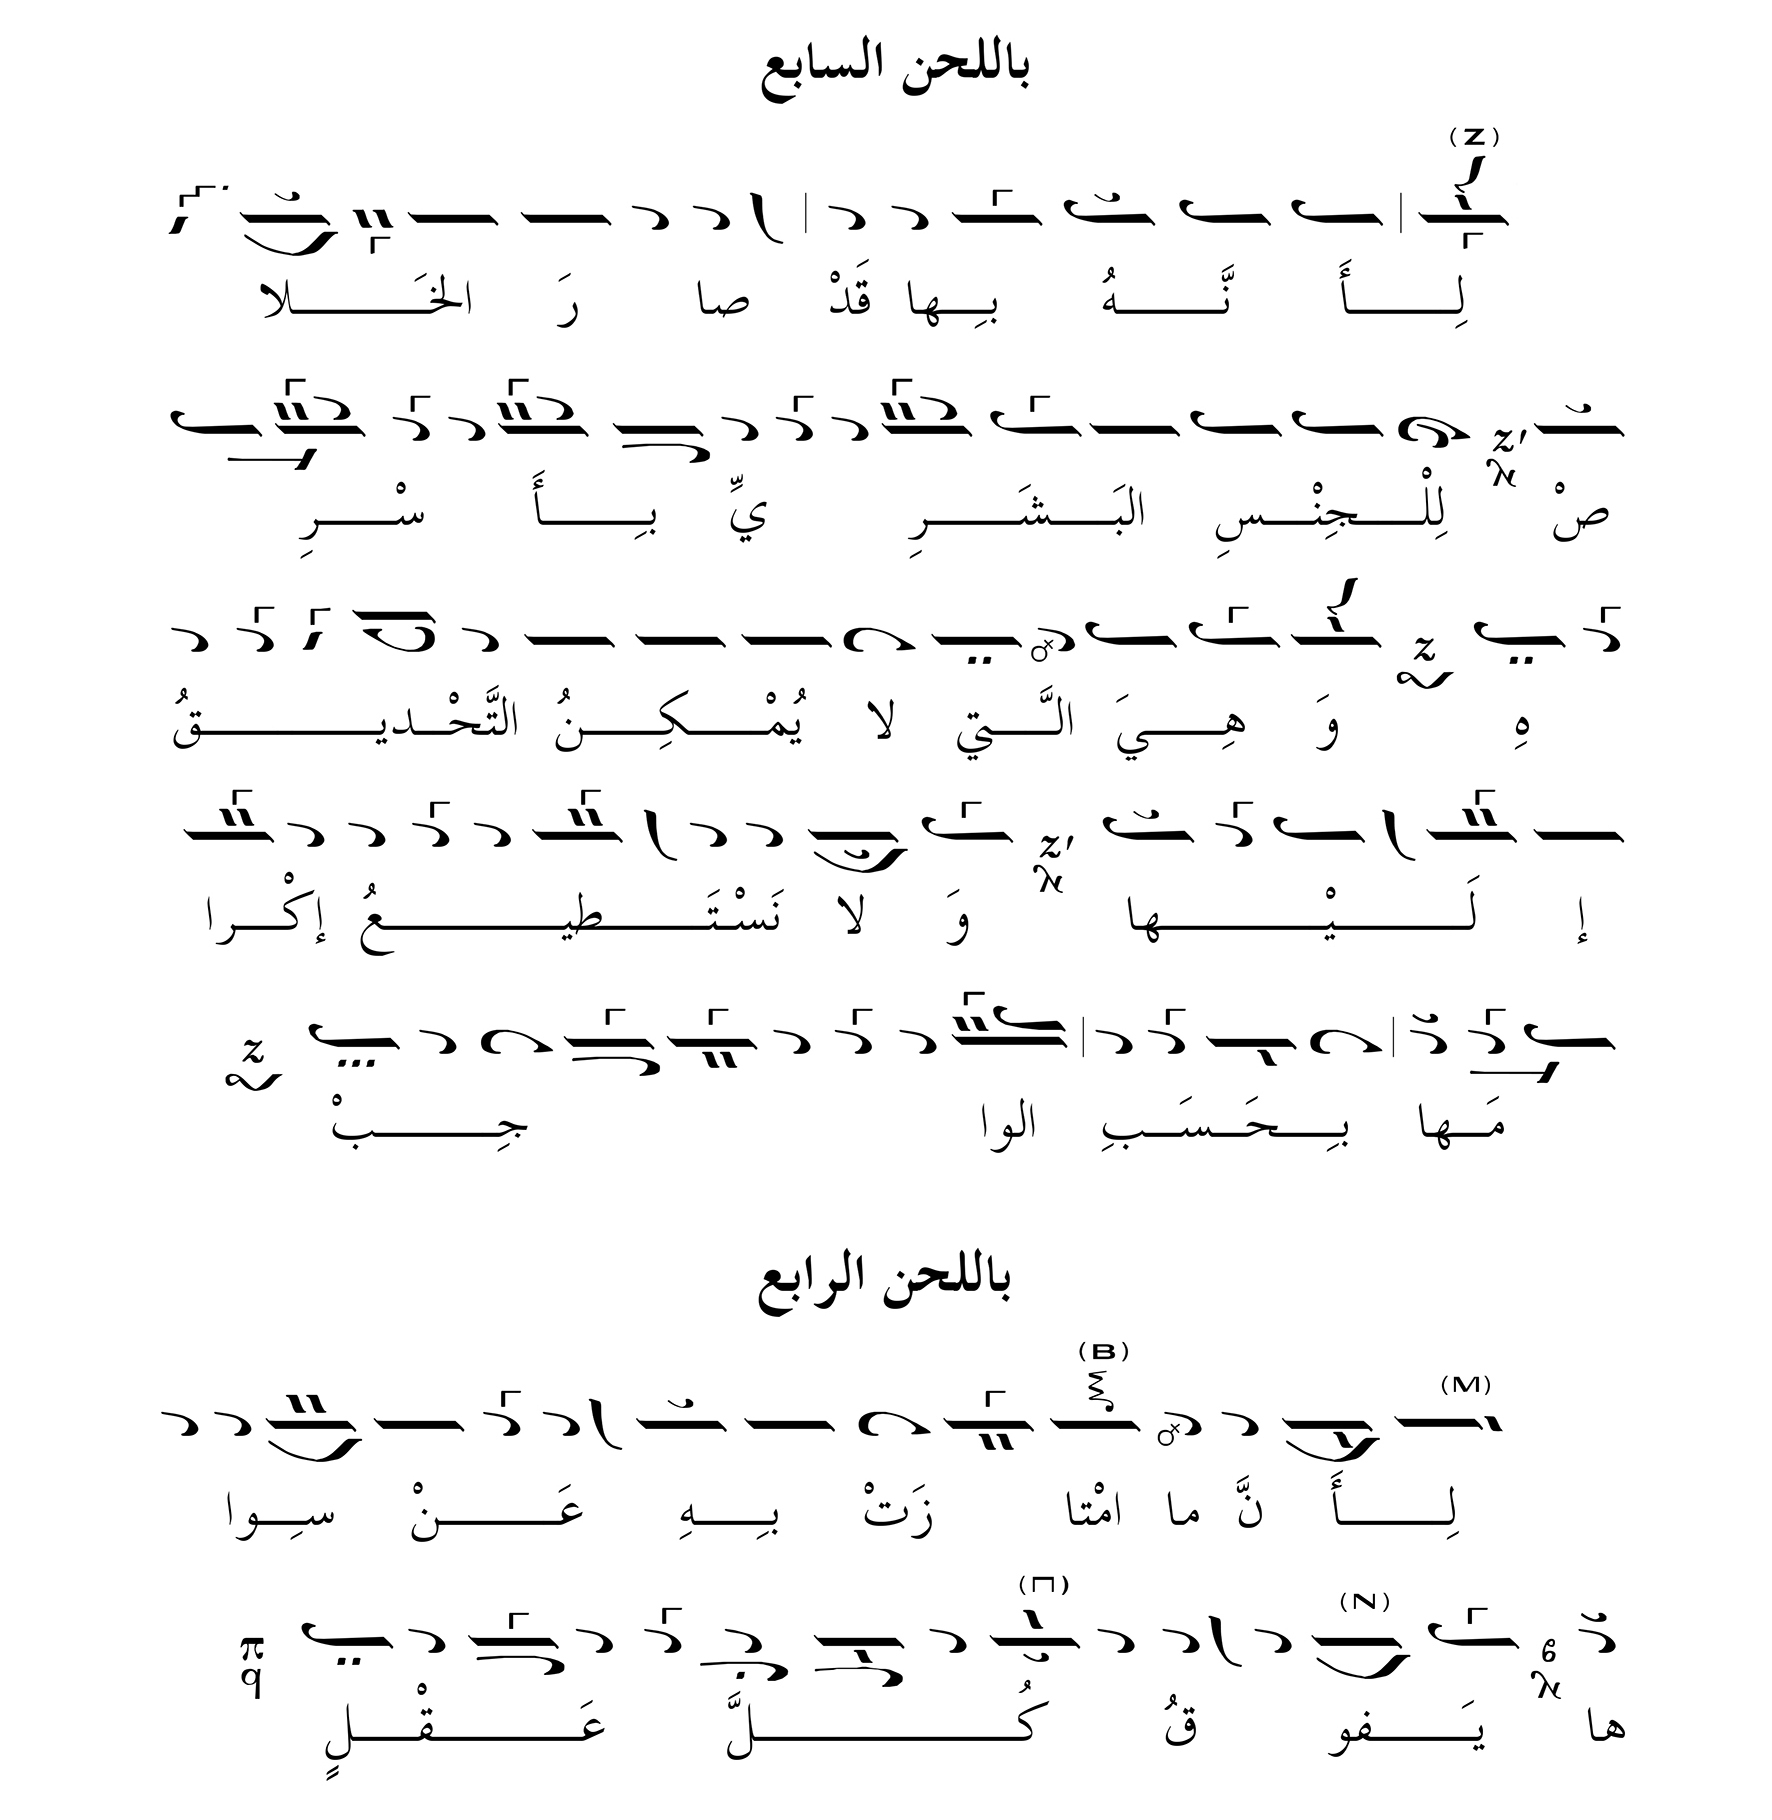 باللحن السابع
(Z)
لِـــأَ نَّـــهُ بِـها قَدْ صا رَ الخَـــلا
صْ لِلْـــجِنْـــسِ البَـــشَـــرِ يِّ بِـــأَ سْـــرِ
هِ وَ هِـــيَ الَّـــتي لا يُمْـــكِـــنُ التَّحْـــديـــقُ
إ لَـــيْـــها وَ لا نَسْـتَـــطيـــعُ إكْـــرا
مَـــها بِـــحَـــسَـــبِ الوا جِـــبْ
باللحن الرابع
(M) (B)
لِـــأَ نَّ ما امْتا زَتْ بِـــهِ عَـــنْ سِـــوا
(N) (Π)
ها يَـــفو قُ كُـــلَّ عَـــقْـــلٍ